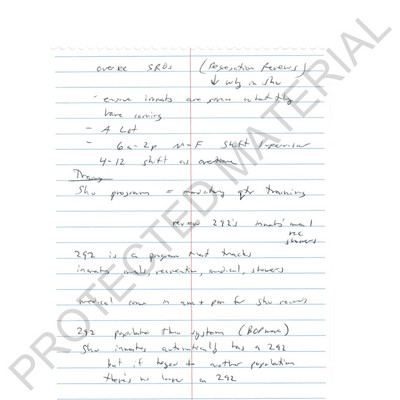 oversee SROs (Segregation Reviews)
↓ why in shu
- ensure inmates are given what they
have coming
- A Lot
- 6a-2p M-F Shift Supervisor
4-12 shift as overtime
Training
Shu program = mandatory qtr training
review 292's inmates' meal
rec
showers
292 is a program that tracks
inmates meals, recreation, medical, showers
medical come in am + pm for shu rounds
292 populates thru system
Shu inmates automatically has a 292
but if transferred to another population
there's no longer a 292
PROTECTED MATERIAL